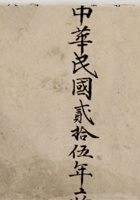 中華民國貳拾伍年六